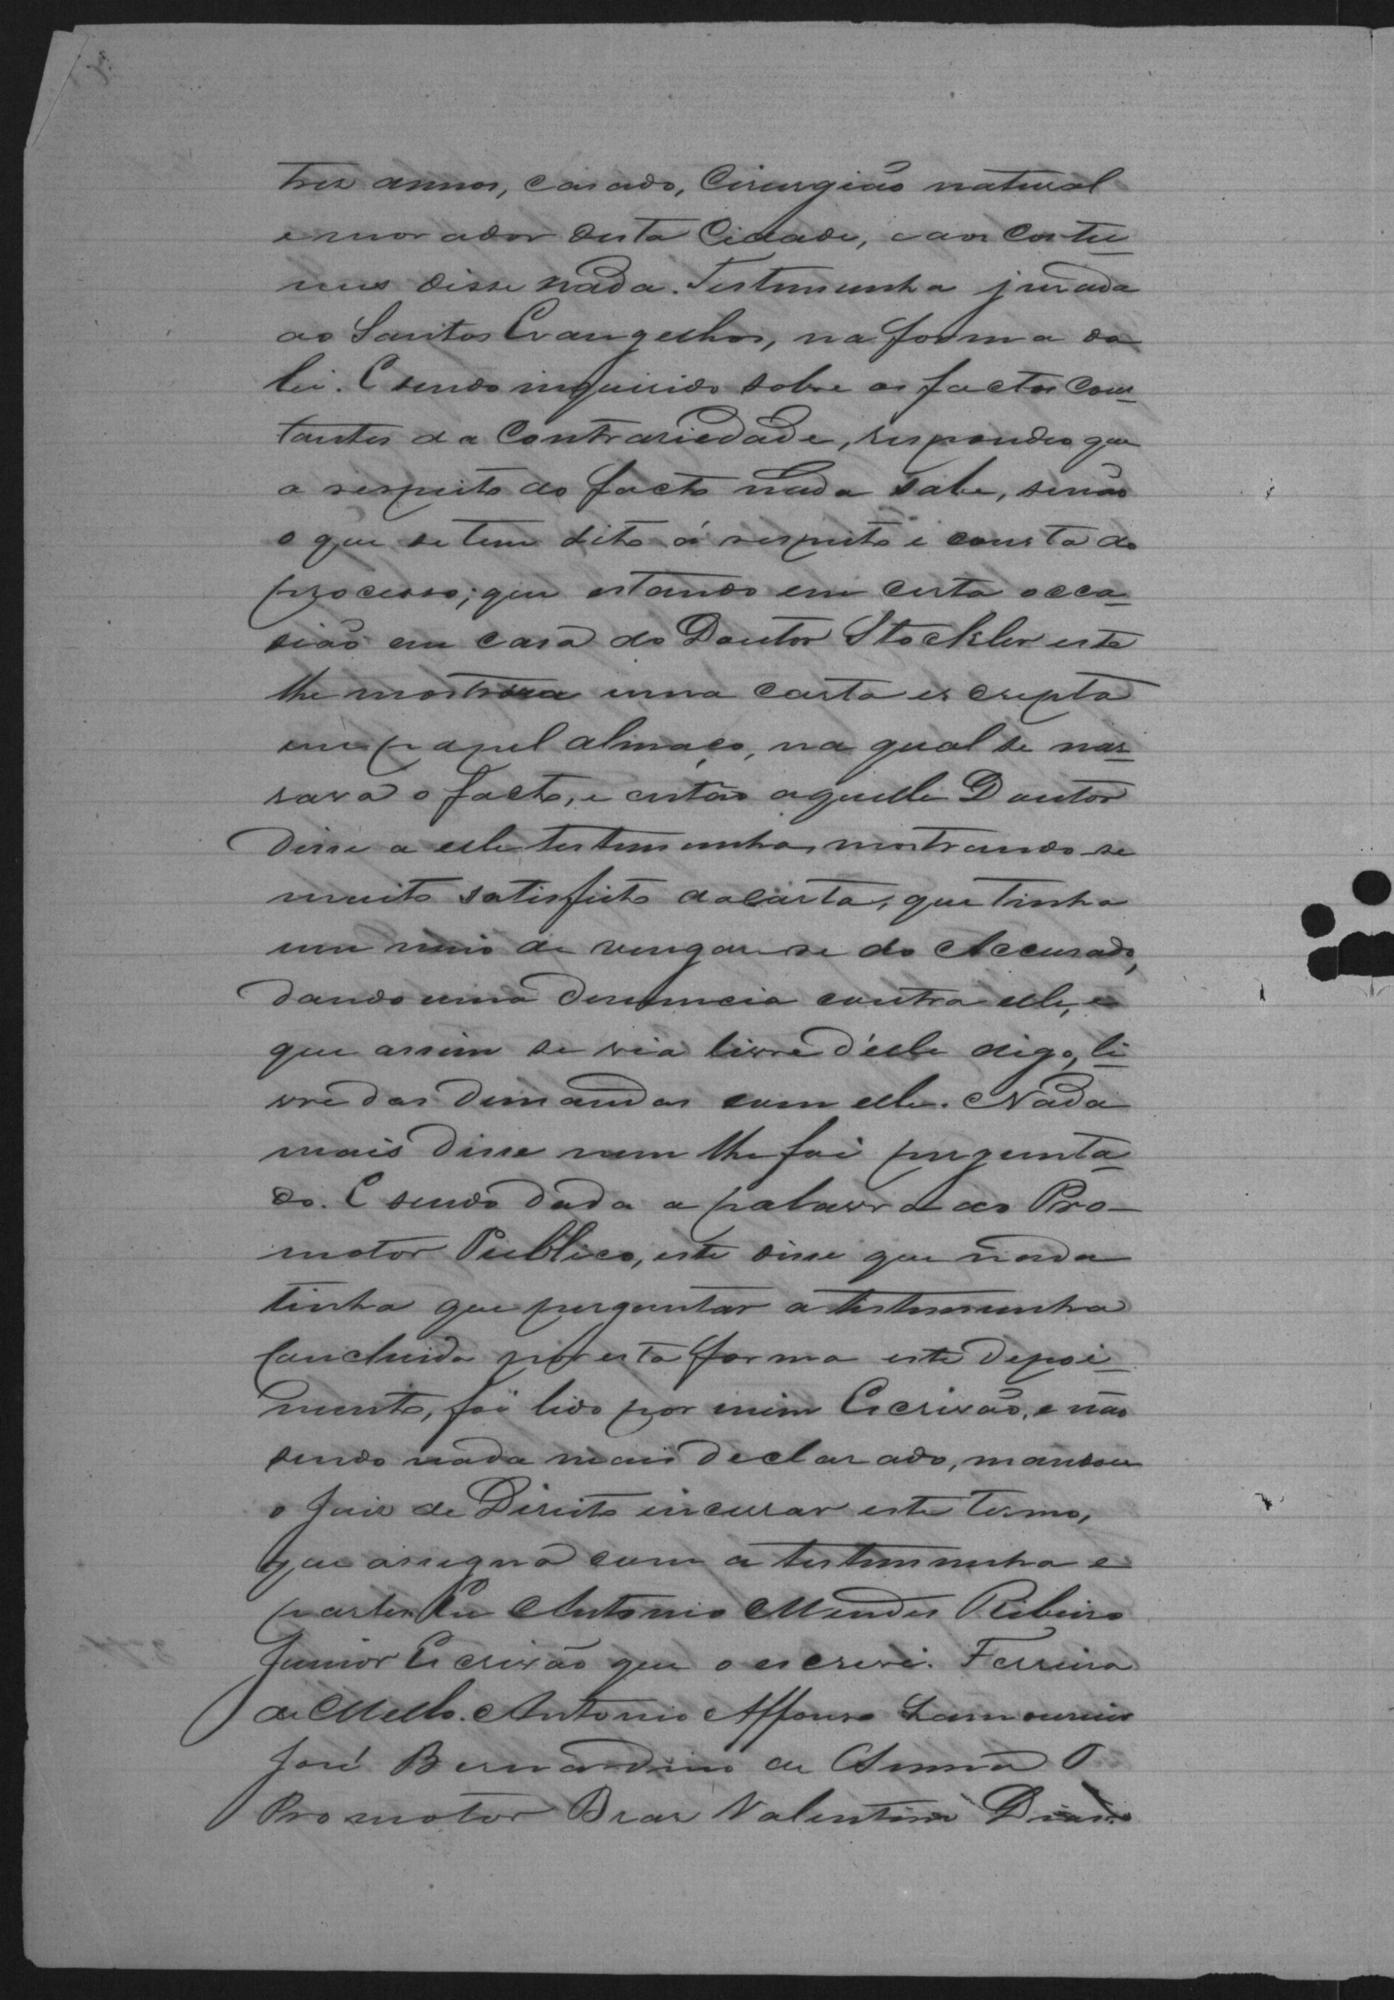 tres annos, casado, Cirurgião natural
e morador desta Cidade, e aos costu-
mes disse nada. Testemunha jurada
ao Santos Evangelhos, na forma da
lei. E sendo inquirido sobre os factos cons-
tantes da Contrariedade, respondeo que
a respeito do facto nada sabe, senão
o que se tem dito á respeito e consta do
processo; que estando em certa occa-
sião em casa do Doutor Stockler este
lhe mostrara uma carta escripta
em papel almaço, na qual se nar-
rava o facto, e então aquelle Doutor
disse a elle testemunha, mostrando-se
muito satisfeito da carta, que tinha
um meio de vengar-se do Accusado,
dando uma denuncia contra elle, e
que assim se via livre d'elle digo, li-
vre das demandas com elle. Nada
mais disse nem lhe foi pergunta-
do. E sendo dada a palavra ao Pro-
motor Publico, este disse que nada
tinha que perguntar a testemunha
Concluido por esta forma este depoi-
mento, foi lido por mim Escrivão, e não
sendo nada mais declarado, mandou
o Juiz de Direito incerrar este termo,
que assigna com a testemunha e
partes. Eu Antonio Mendes Ribeiro
Junior Escrivão que o escrevi. Ferreira
de Mello. Antonio Affonso Lamounier
José Bernardino de Senna O
Promotor Braz Valentim Dias